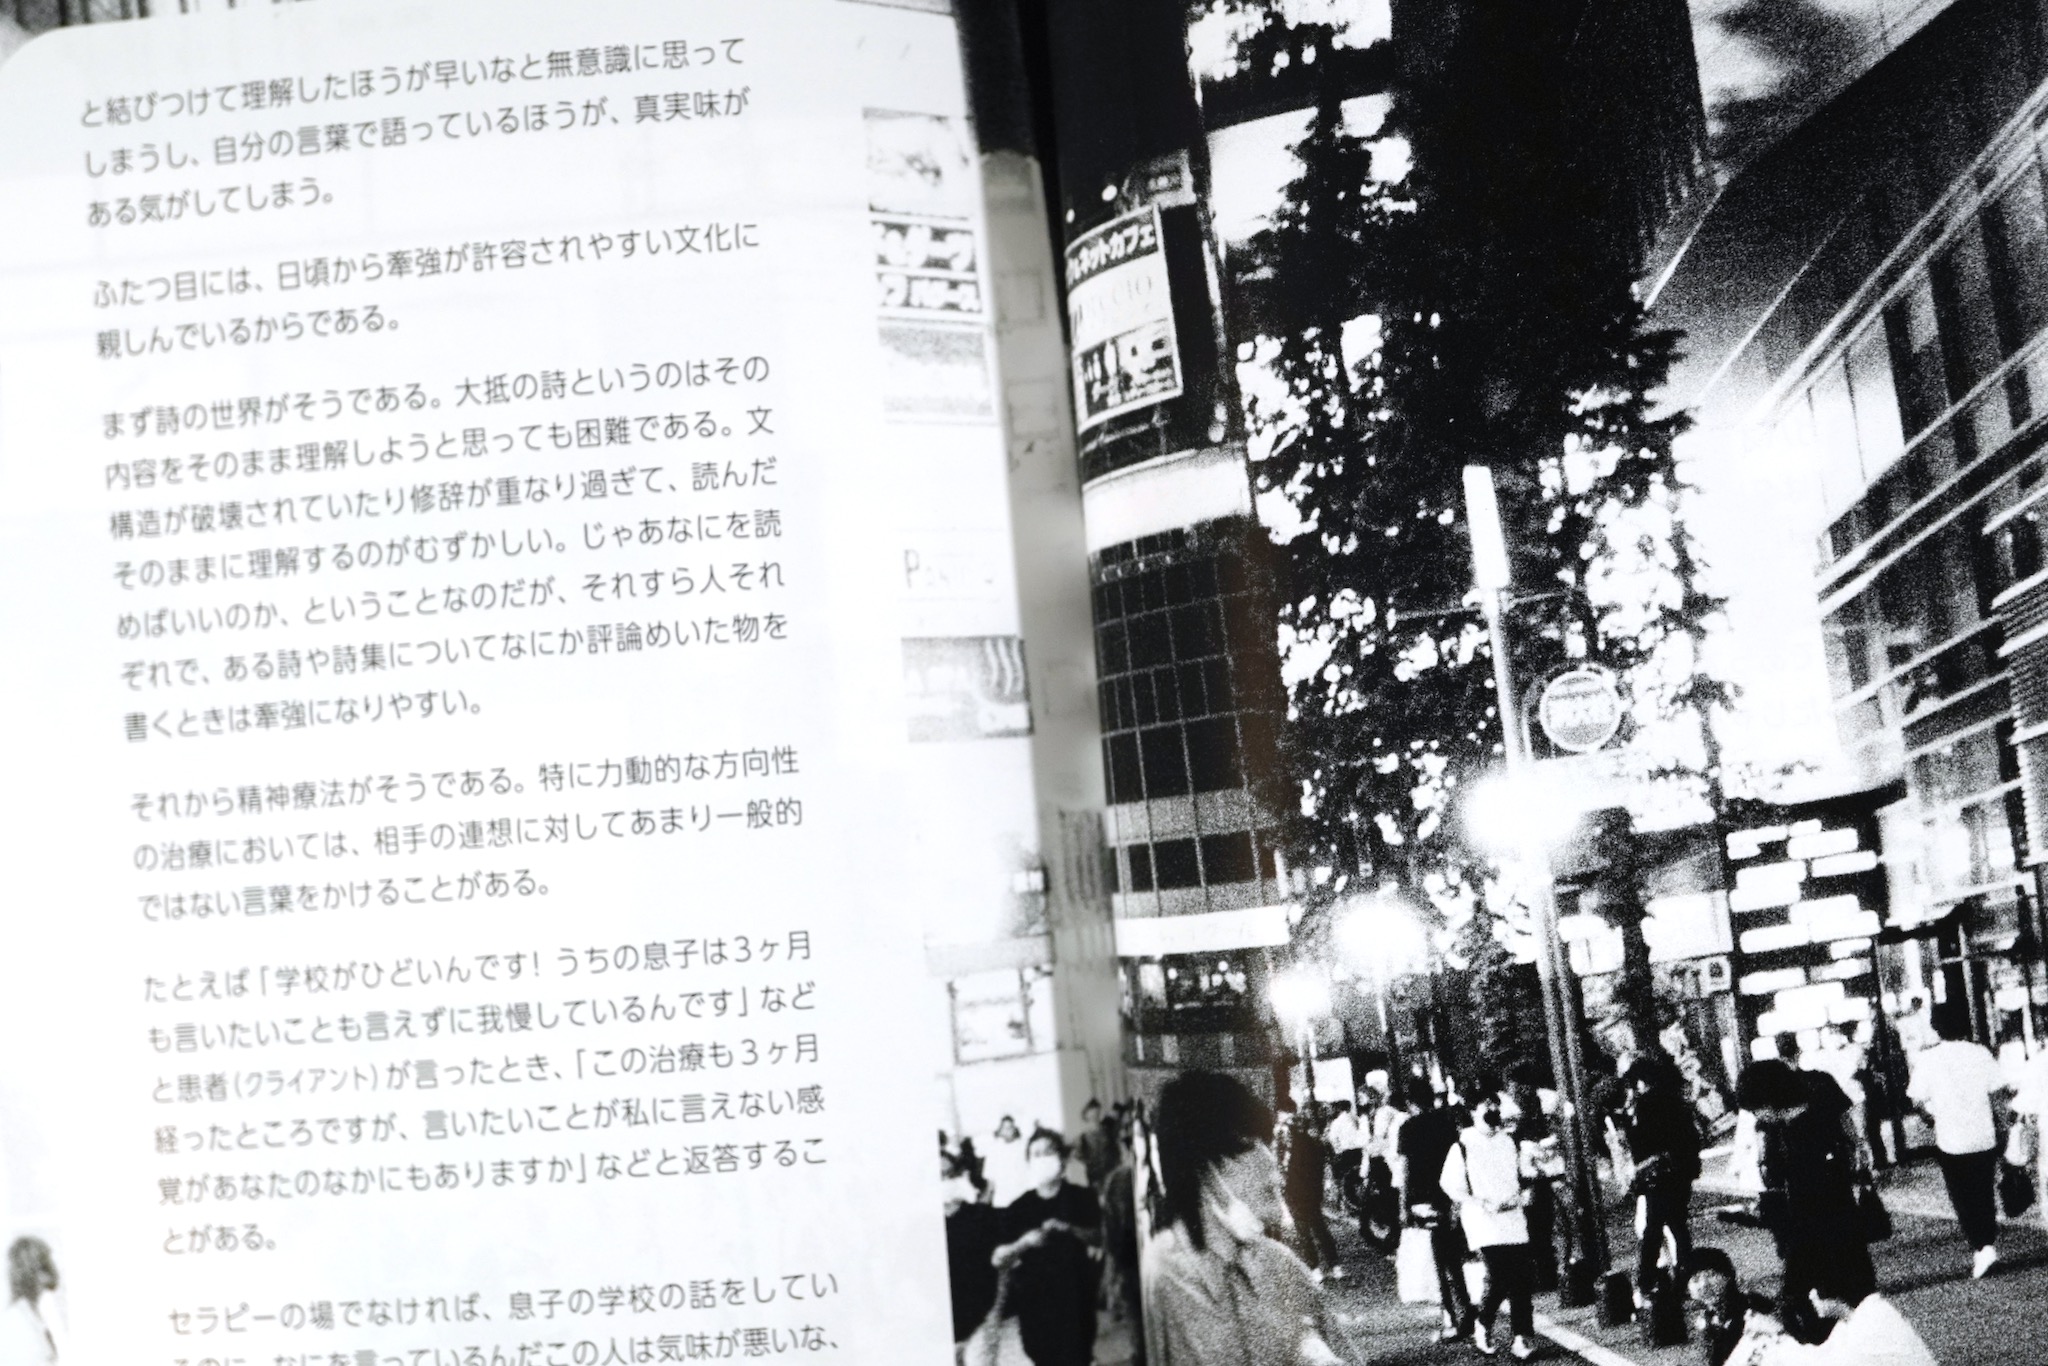 と結びつけて理解したほうが早いなと無意識に思って
しまうし、自分の言葉で語っているほうが、真実味が
ある気がしてしまう。
ふたつ目には、日頃から牽強が許容されやすい文化に
親しんでいるからである。
まず詩の世界がそうである。大抵の詩というのはその
内容をそのまま理解しようと思っても困難である。文
構造が破壊されていたり修辞が重なり過ぎて、読んだ
そのままに理解するのがむずかしい。じゃあなにを読
めばいいのか、ということなのだが、それすら人それ
ぞれで、ある詩や詩集についてなにか評論めいた物を
書くときは牽強になりやすい。
それから精神療法がそうである。特に力動的な方向性
の治療においては、相手の連想に対してあまり一般的
ではない言葉をかけることがある。
たとえば「学校がひどいんです！うちの息子は３ヶ月
も言いたいことも言えずに我慢しているんです」など
と患者（クライアント）が言ったとき、「この治療も３ヶ月
経ったところですが、言いたいことが私に言えない感
覚があなたのなかにもありますか」などと返答するこ
とがある。
セラピーの場でなければ、息子の学校の話をしてい
るのに、なにを言っているんだこの人は気味が悪いな、
ネットカフェ